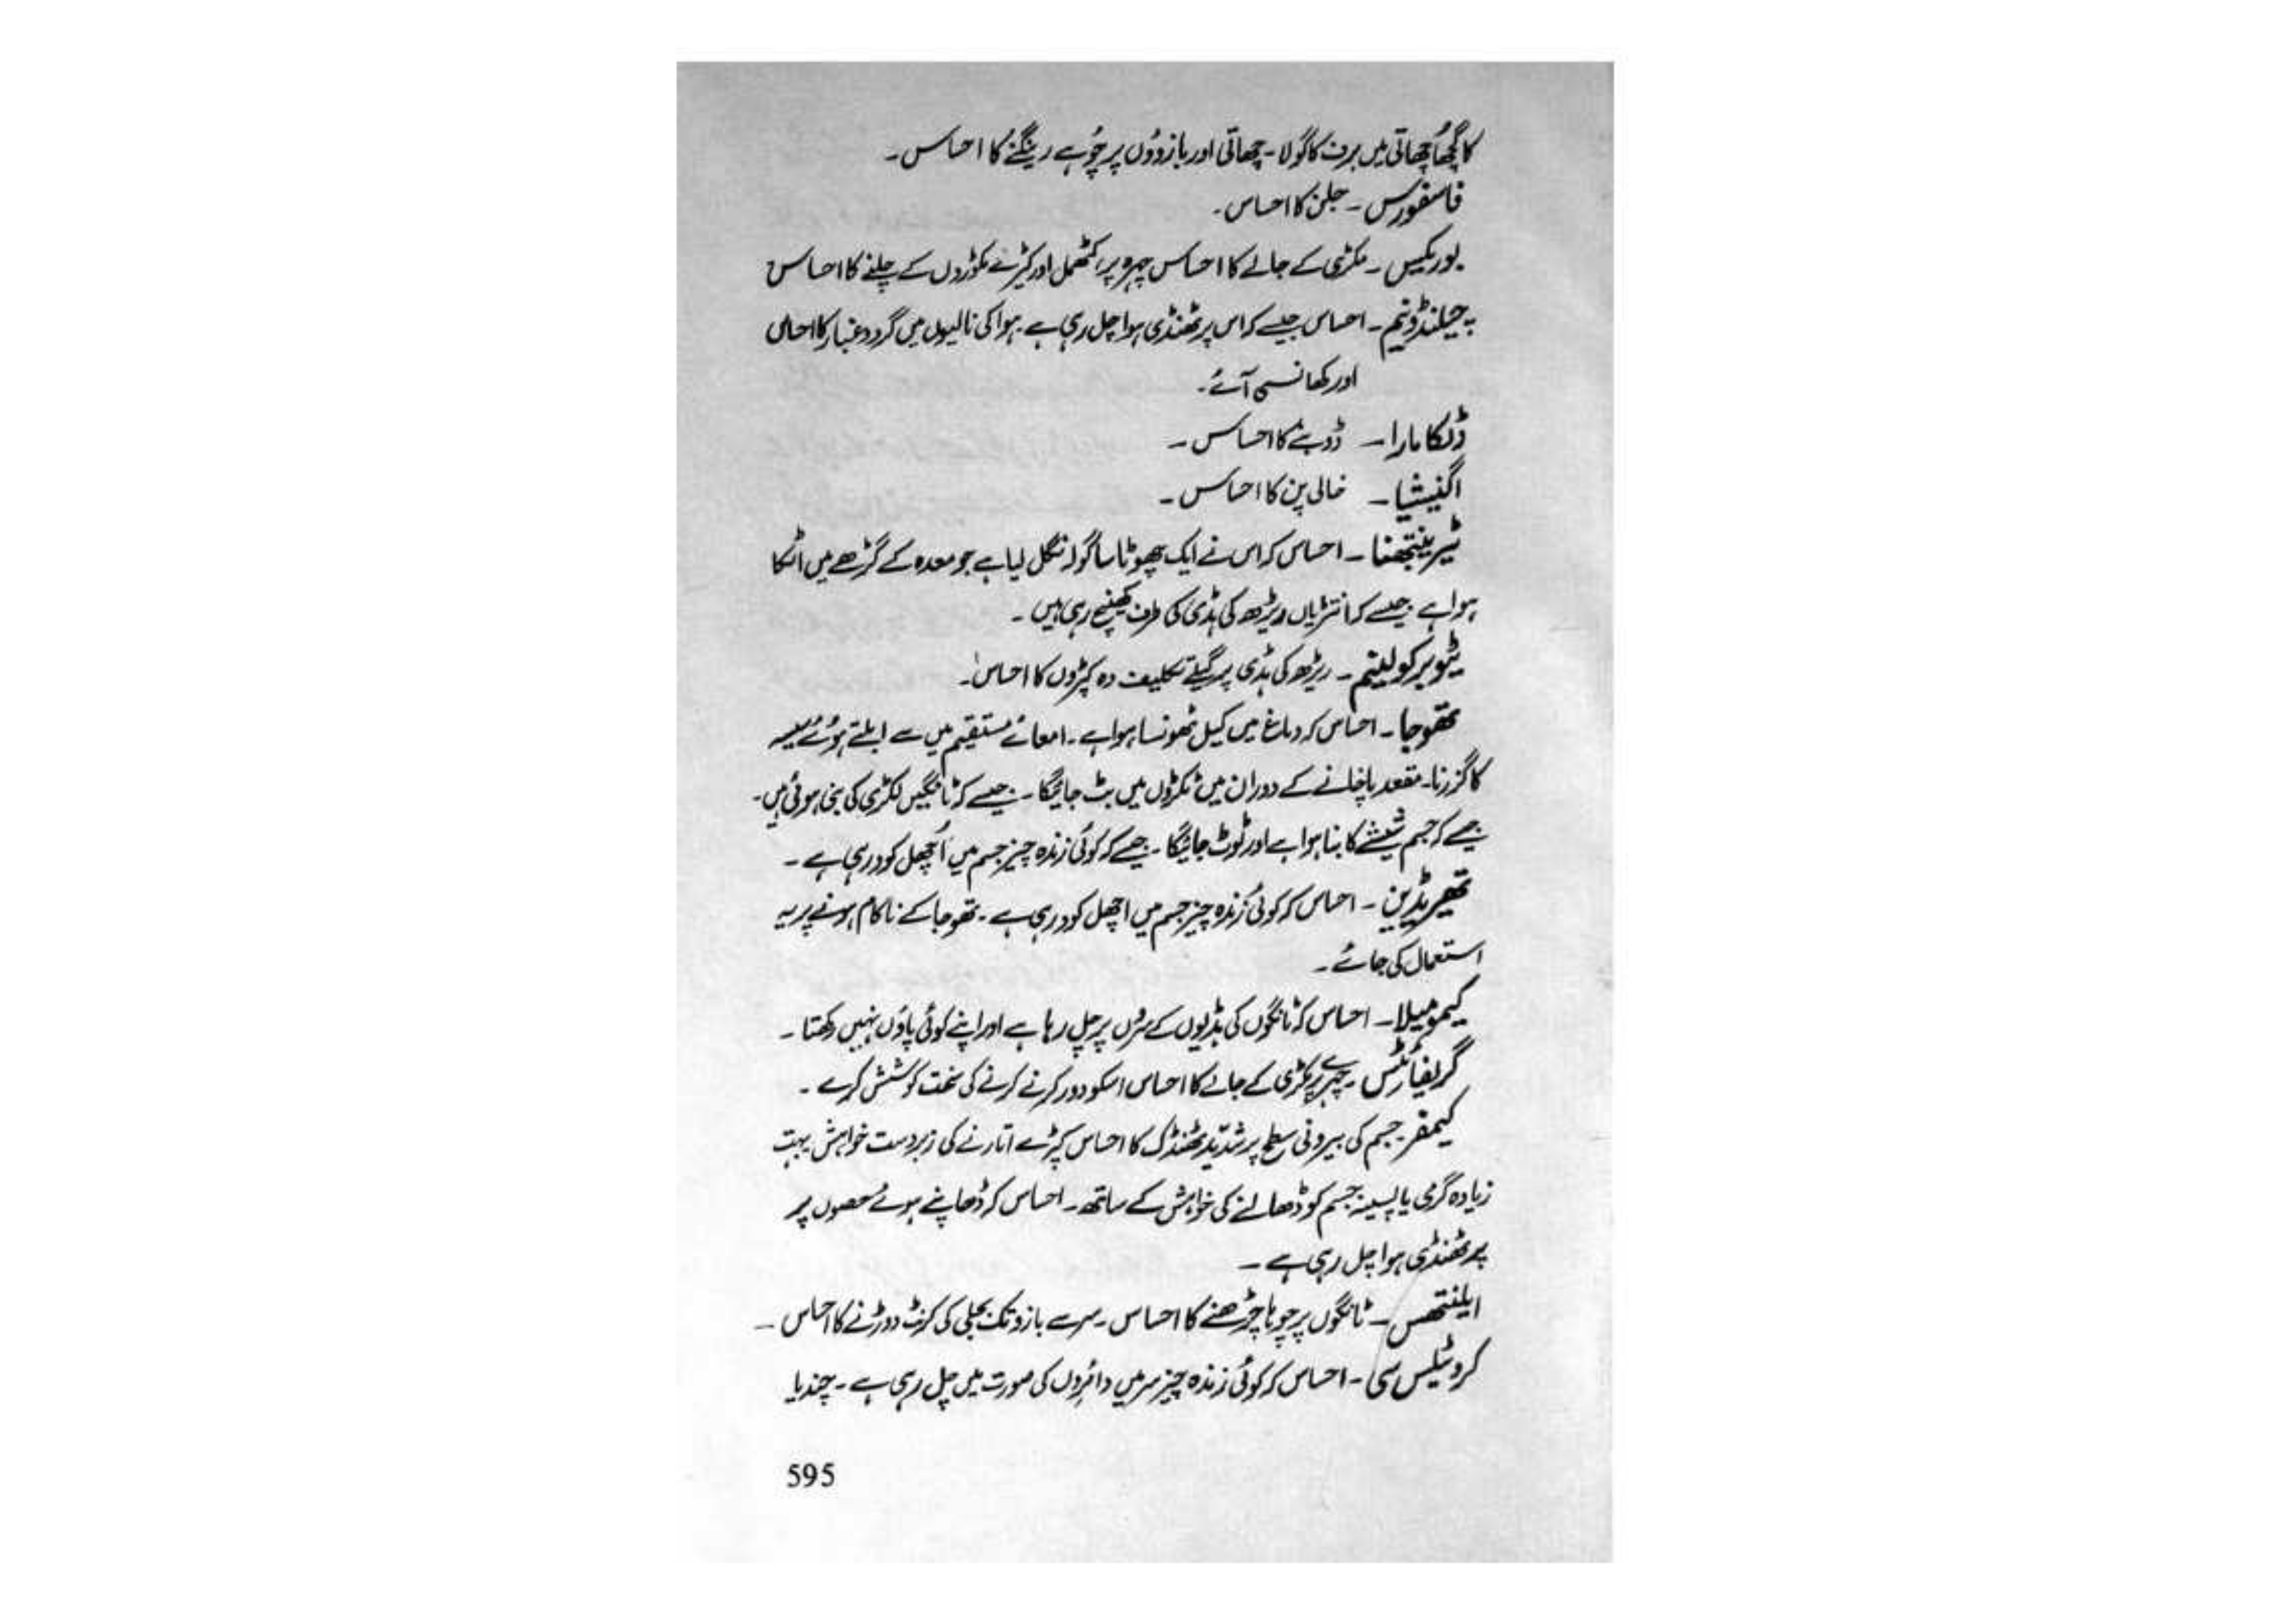 کا گچھا چھاتی میں برف کا گولا۔ چھاتی اور بازوؤں پر چُوہے رینگنے کا احساس۔
فاسفورس ۔ جلن کا احساس۔
بوریکیس ۔ مکڑی کے جالے کا احساس چہرہ پر، کھٹمل اور کیڑے مکوڑوں کے چلنے کا احساس
چیلنڈونیم ۔ احساس جیسے کہ اس پر ٹھنڈی ہوا چل رہی ہے۔ ہوا کی نالیوں میں گرد و غبار کا احساس
اور کھانسی آئے۔
ڈلکامارا ۔ ڈوبنے کا احساس ۔
اگنیشیا ۔ خالی پن کا احساس ۔
ٹیرینتھنا ۔ احساس کہ اس نے ایک چھوٹا سا گولہ نگل لیا ہے جو معدہ کے گڑھے میں اٹکا
ہوا ہے ۔ جیسے کہ انتڑیاں ریڑھ کی ہڈی کی طرف کھینچ رہی ہیں ۔
ٹیوبرکولینم ۔ ریڑھ کی ہڈی پر گیلے تکلیف دہ کپڑوں کا احساس۔
تھوجا ۔ احساس کہ دماغ میں کیل ٹھونسا ہوا ہے ۔ امعائے مستقیم میں سے ابلتے ہوئے سیسہ
کا گزرنا۔ مقعد پاخانے کے دوران میں ٹکڑوں میں بٹ جائیگا ۔ جیسے کہ ٹانگیں لکڑی کی بنی ہوئی ہیں۔
جیسے کہ جسم شیشے کا بنا ہوا ہے اور ٹوٹ جائیگا ۔ جیسے کہ کوئی زندہ چیز جسم میں اُچھل کود رہی ہے ۔
تھیریڈین ۔ احساس کہ کوئی زندہ چیز جسم میں اچھل کود رہی ہے ۔ تھوجا کے ناکام ہونے پر یہ
استعمال کی جائے ۔
کیمومیلا ۔ احساس کہ ٹانگوں کی ہڈیوں کے سروں پر چل رہا ہے اور اپنے کوئی پاؤں نہیں رکھتا ۔
گریفائٹس ۔ چہرے پر مکڑی کے جالے کا احساس اسکو دور کرنے کرنے کی سخت کوشش کرے ۔
کیمفر ۔ جسم کی بیرونی سطح پر شدید ٹھنڈک کا احساس کپڑے اتارنے کی زبردست خواہش ۔ بہت
زیادہ گرمی یا پسینہ جسم کو ڈھالنے کی خواہش کے ساتھ ۔ احساس کہ ڈھانپے ہوئے حصوں پر
پر ٹھنڈی ہوا چل رہی ہے ۔
ایلنتھس ۔ ٹانگوں پر چوہا چڑھنے کا احساس ۔ سر سے بازو تک بجلی کی کرنٹ دوڑنے کا احساس ۔
کروٹیلس سی ۔ احساس کہ کوئی زندہ چیز سر میں دائروں کی صورت میں چل رہی ہے ۔ چندیا
595